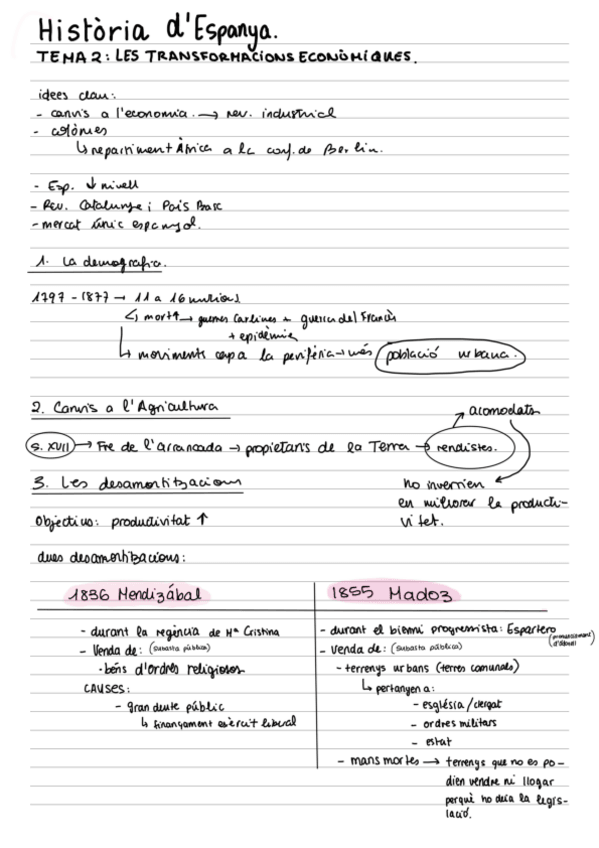 Història d'Espanya.
TEMA 2: LES TRANSFORMACIONS ECONÒMIQUES.
idees clau:
- canvis a l'economia. → rev. industrial
- colònies
↳ repartiment Àfrica a la conf. de Berlin.
- Esp. ↓ nivell
- Rev. Catalunya i País Basc
- mercat únic espanyol.
1. La demografia.
1797 - 1877 → 11 a 16 milions
↳ mort↑ → guerres Carlines + guerra del Francès
+ epidèmia
↳ moviments cap a la perifèria → més població urbana.
2. Canvis a l'Agricultura
→ acomodats
S. XVII → Fre de l'arrancada → propietaris de la Terra → rendistes.
3. Les desamortitzacions
no inverrien
en millorar la producti-
vitat.
Objectius: productivitat ↑
dues desamortitzacions:
1836 Mendizábal
- durant la regència de Mª Cristina
- Venda de: (subasta pública)
· béns d'ordres religiosos
CAUSES:
- gran deute públic
↳ finançament exèrcit liberal
1855 Madoz
- durant el bienni progressista: Espartero (pronunciament
- venda de: (subasta pública)
- terrenys urbans (terres comunals)
↳ pertanyen a:
- església / clergat
- ordres militars
- estat
- mans mortes → terrenys que no es po-
dien vendre ni llogar
perquè ho deia la legis-
lació.